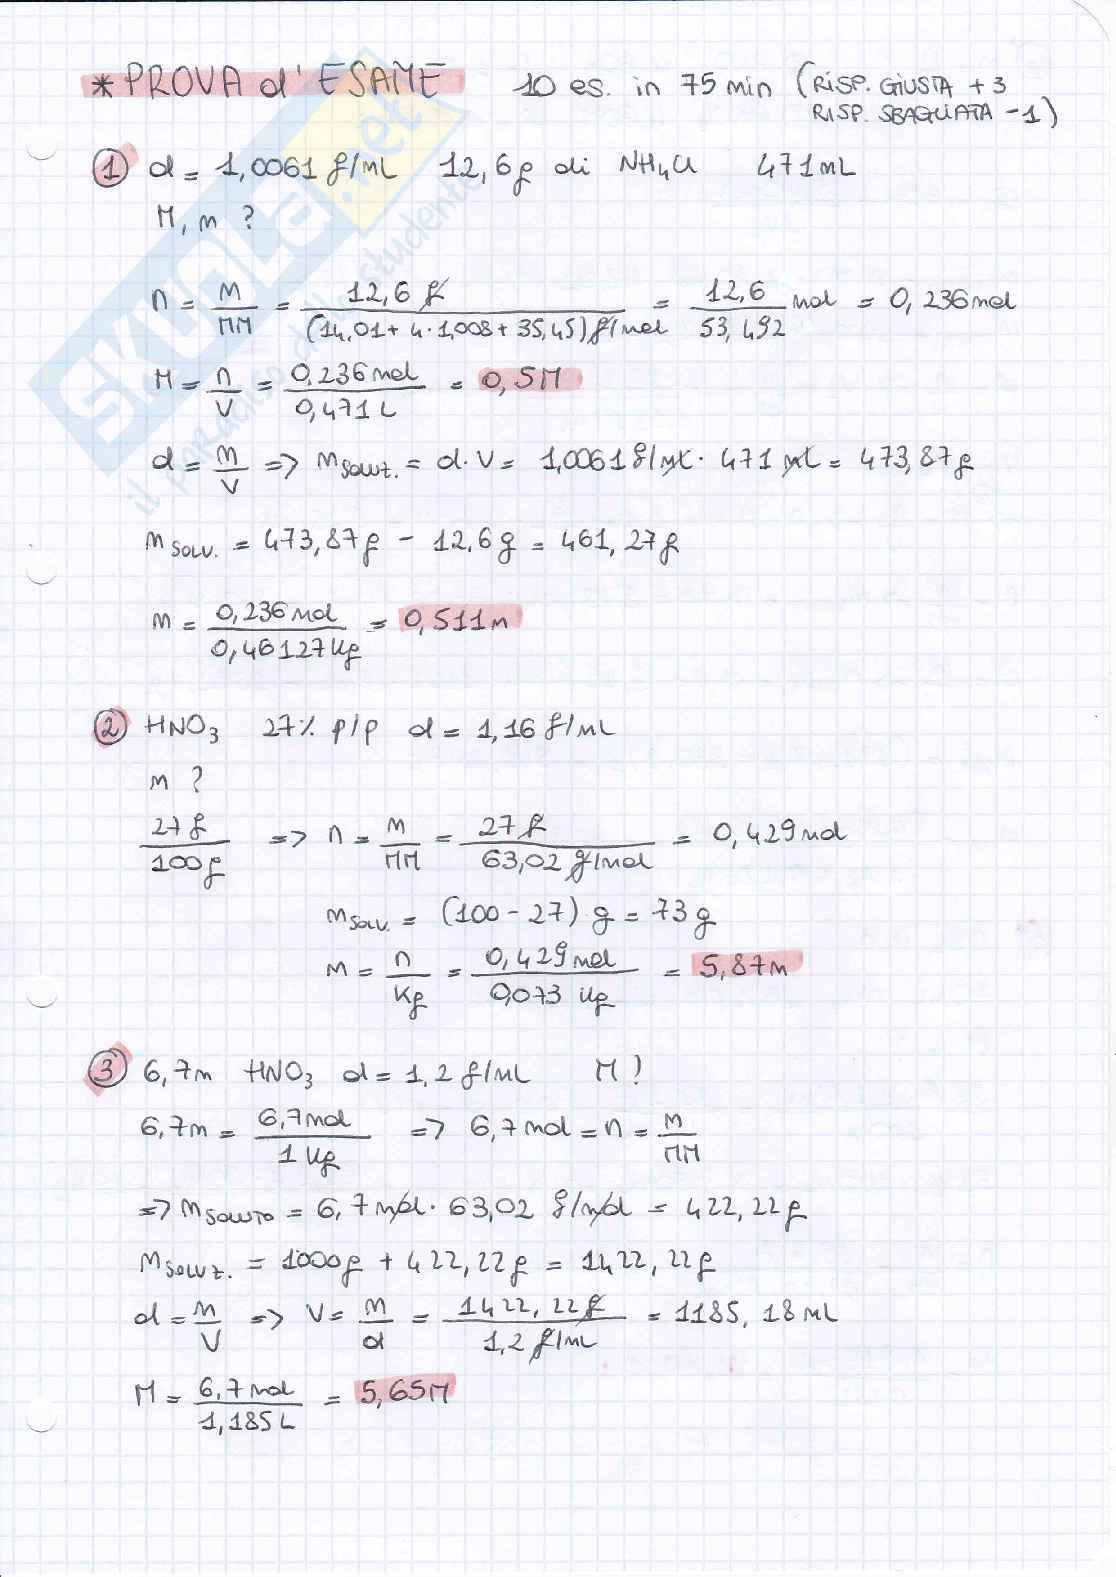 * PROVA d'ESAME 10 es. in 75 min (RISP. GIUSTA +3
RISP. SBAGLIATA -1)
① d = 1,0061 g/mL 12,6g di NH₄Cl 471mL
M, m ?
n = m/MM = 12,6 g/(14,01 + 4·1,008 + 35,45) g/mol = 12,6/53,492 mol = 0,236 mol
M = n/V = 0,236 mol/0,471 L = 0,5M
d = m/V => m soluz. = d·V = 1,0061 g/mL · 471 mL = 473,87g
m solv. = 473,87g - 12,6g = 461,27g
m = 0,236 mol/0,46127 Kg = 0,511m
② HNO₃ 27% p/p d = 1,16 g/mL
m ?
27g/100g => n = m/MM = 27 g/63,02 g/mol = 0,429 mol
m solv. = (100 - 27) g = 73 g
m = n/Kg = 0,429 mol/0,073 Kg = 5,87m
③ 6,7m HNO₃ d = 1,2 g/mL M?
6,7m = 6,7 mol/1 Kg => 6,7 mol = n = m/MM
=> m soluto = 6,7 mol · 63,02 g/mol = 422,22g
m soluz. = 1000g + 422,22g = 1422,22g
d = m/V => V = m/d = 1422,22 g/1,2 g/mL = 1185,18 mL
M = 6,7 mol/1,185 L = 5,65M
SKUOLA.net
il paradiso dello studente